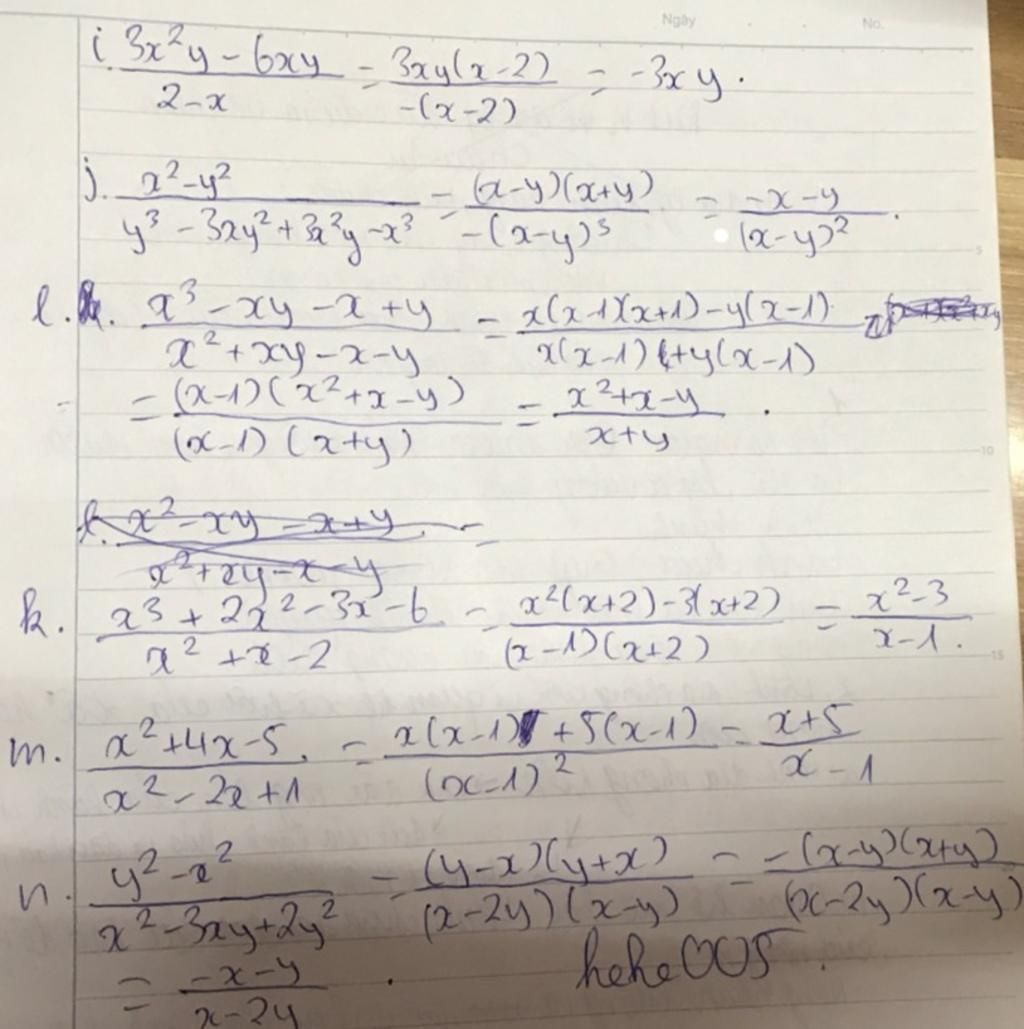 Ngày No.
i. \frac{3x²y - 6xy}{2 - x} = \frac{3xy(x-2)}{-(x-2)} = -3xy.
j. \frac{x²-y²}{y³ - 3xy² + 3x²y - x³} = \frac{(x-y)(x+y)}{-(x-y)³} = \frac{-x-y}{(x-y)²}.
l. \frac{x³ - xy - x + y}{x² + xy - x - y} = \frac{x(x-1)(x+1) - y(x-1)}{x(x-1) + y(x-1)}
= \frac{(x-1)(x²+x-y)}{(x-1)(x+y)} = \frac{x²+x-y}{x+y}.
l. \frac{x² - xy - x + y}{x² + xy - x - y} =
k. \frac{x³ + 2x² - 3x - 6}{x² + x - 2} = \frac{x²(x+2) - 3(x+2)}{(x-1)(x+2)} = \frac{x²-3}{x-1}.
m. \frac{x²+4x-5}{x² - 2x + 1} = \frac{x(x-1) + 5(x-1)}{(x-1)²} = \frac{x+5}{x-1}
n. \frac{y² - x²}{x² - 3xy + 2y²} = \frac{(y-x)(y+x)}{(x-2y)(x-y)} = \frac{-(x-y)(x+y)}{(x-2y)(x-y)}
= \frac{-x-y}{x-2y}. hehe005.
5
10
15